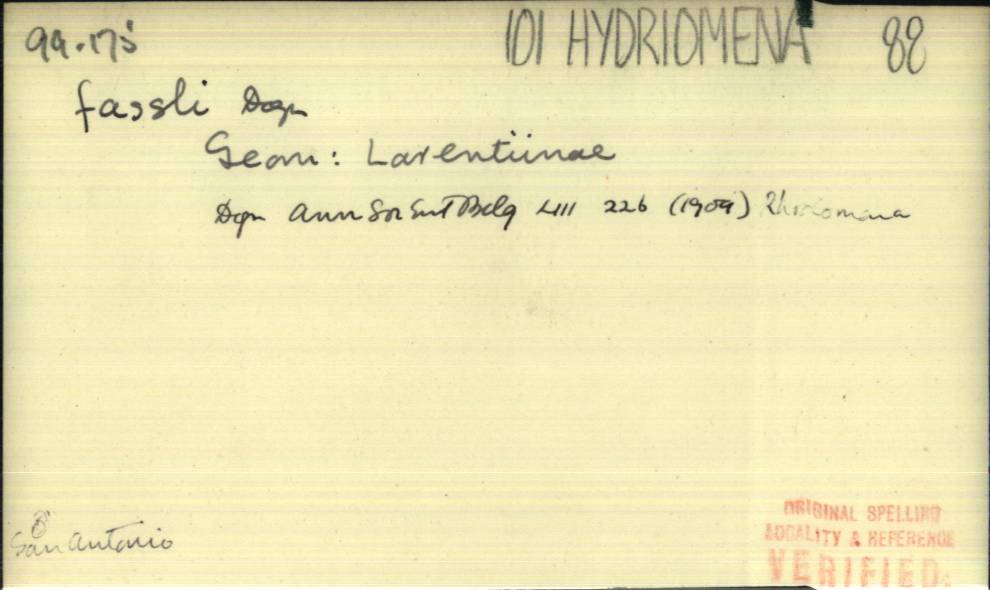 99.175 101 HYDRIOMENA 88
fassli Dogn
Geom: Larentiinae
Dgn Ann Soc Ent Belg LIII 226 (1909)
San Antonio
ORIGINAL SPELLING
LOCALITY & REFERENCE
VERIFIED.